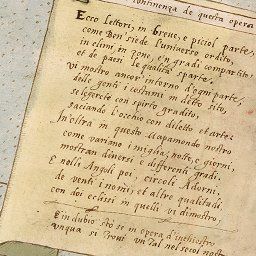 continenza de questa opera
Ecco lettori, in breve, e piciol parte,
come Ben siede l'universo ordito,
in climi, in zone, e in gradi compartito:
et de paesi le qualità sparte,
vi mostro ancor intorno d'ogni parte,
delle genti i costumi in detto sito,
se legerete con spirto gradito,
saciando l'occhio con diletto et arte:
In oltra in questo Mapamondo nostro
come variano i mighi, notte, e giorni,
mostran diversi e differenti gradi.
E nelli Angoli poi, circoli Adorni,
de venti i nomi, et altre qualitadi,
con doi eclissi in quelli vi dimostro,
E in dubio sto se in opera d'inchiostro
unqua si trovi un tal nel secol nostro